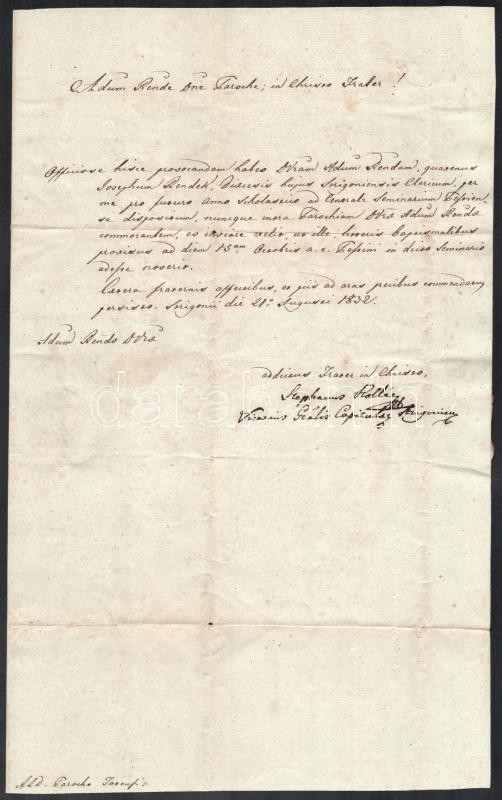 Adum Rende Dne Paroche; in Christo Frater!
Officiose hisce provocandam habeo DVram Adum Rendam, quatenus
Josephum Rendek, Dioecesis hujus Strigoniensis Clericum, per
me pro futuro Anno Scholastico ad Centrale Seminarium Pestiense
dispositum, nuncque intra Parochiam DVrae Adum Rendae
commorantem, eo inviare velit, ut ille literis Baptismalibus
provisus ad diem 15am Octobris a. c. Pestini in dicto Seminario
adesse noverit.
Caetera fraternis affectibus, et piis ad aras precibus commendatus
persisto. Strigonii die 21a Augusti 1832.
Adum Rendo DVrae
addictus Frater in Christo,
Stephanus
Vicarius Gralis Capitularis Strigonien
Ad. Parocho